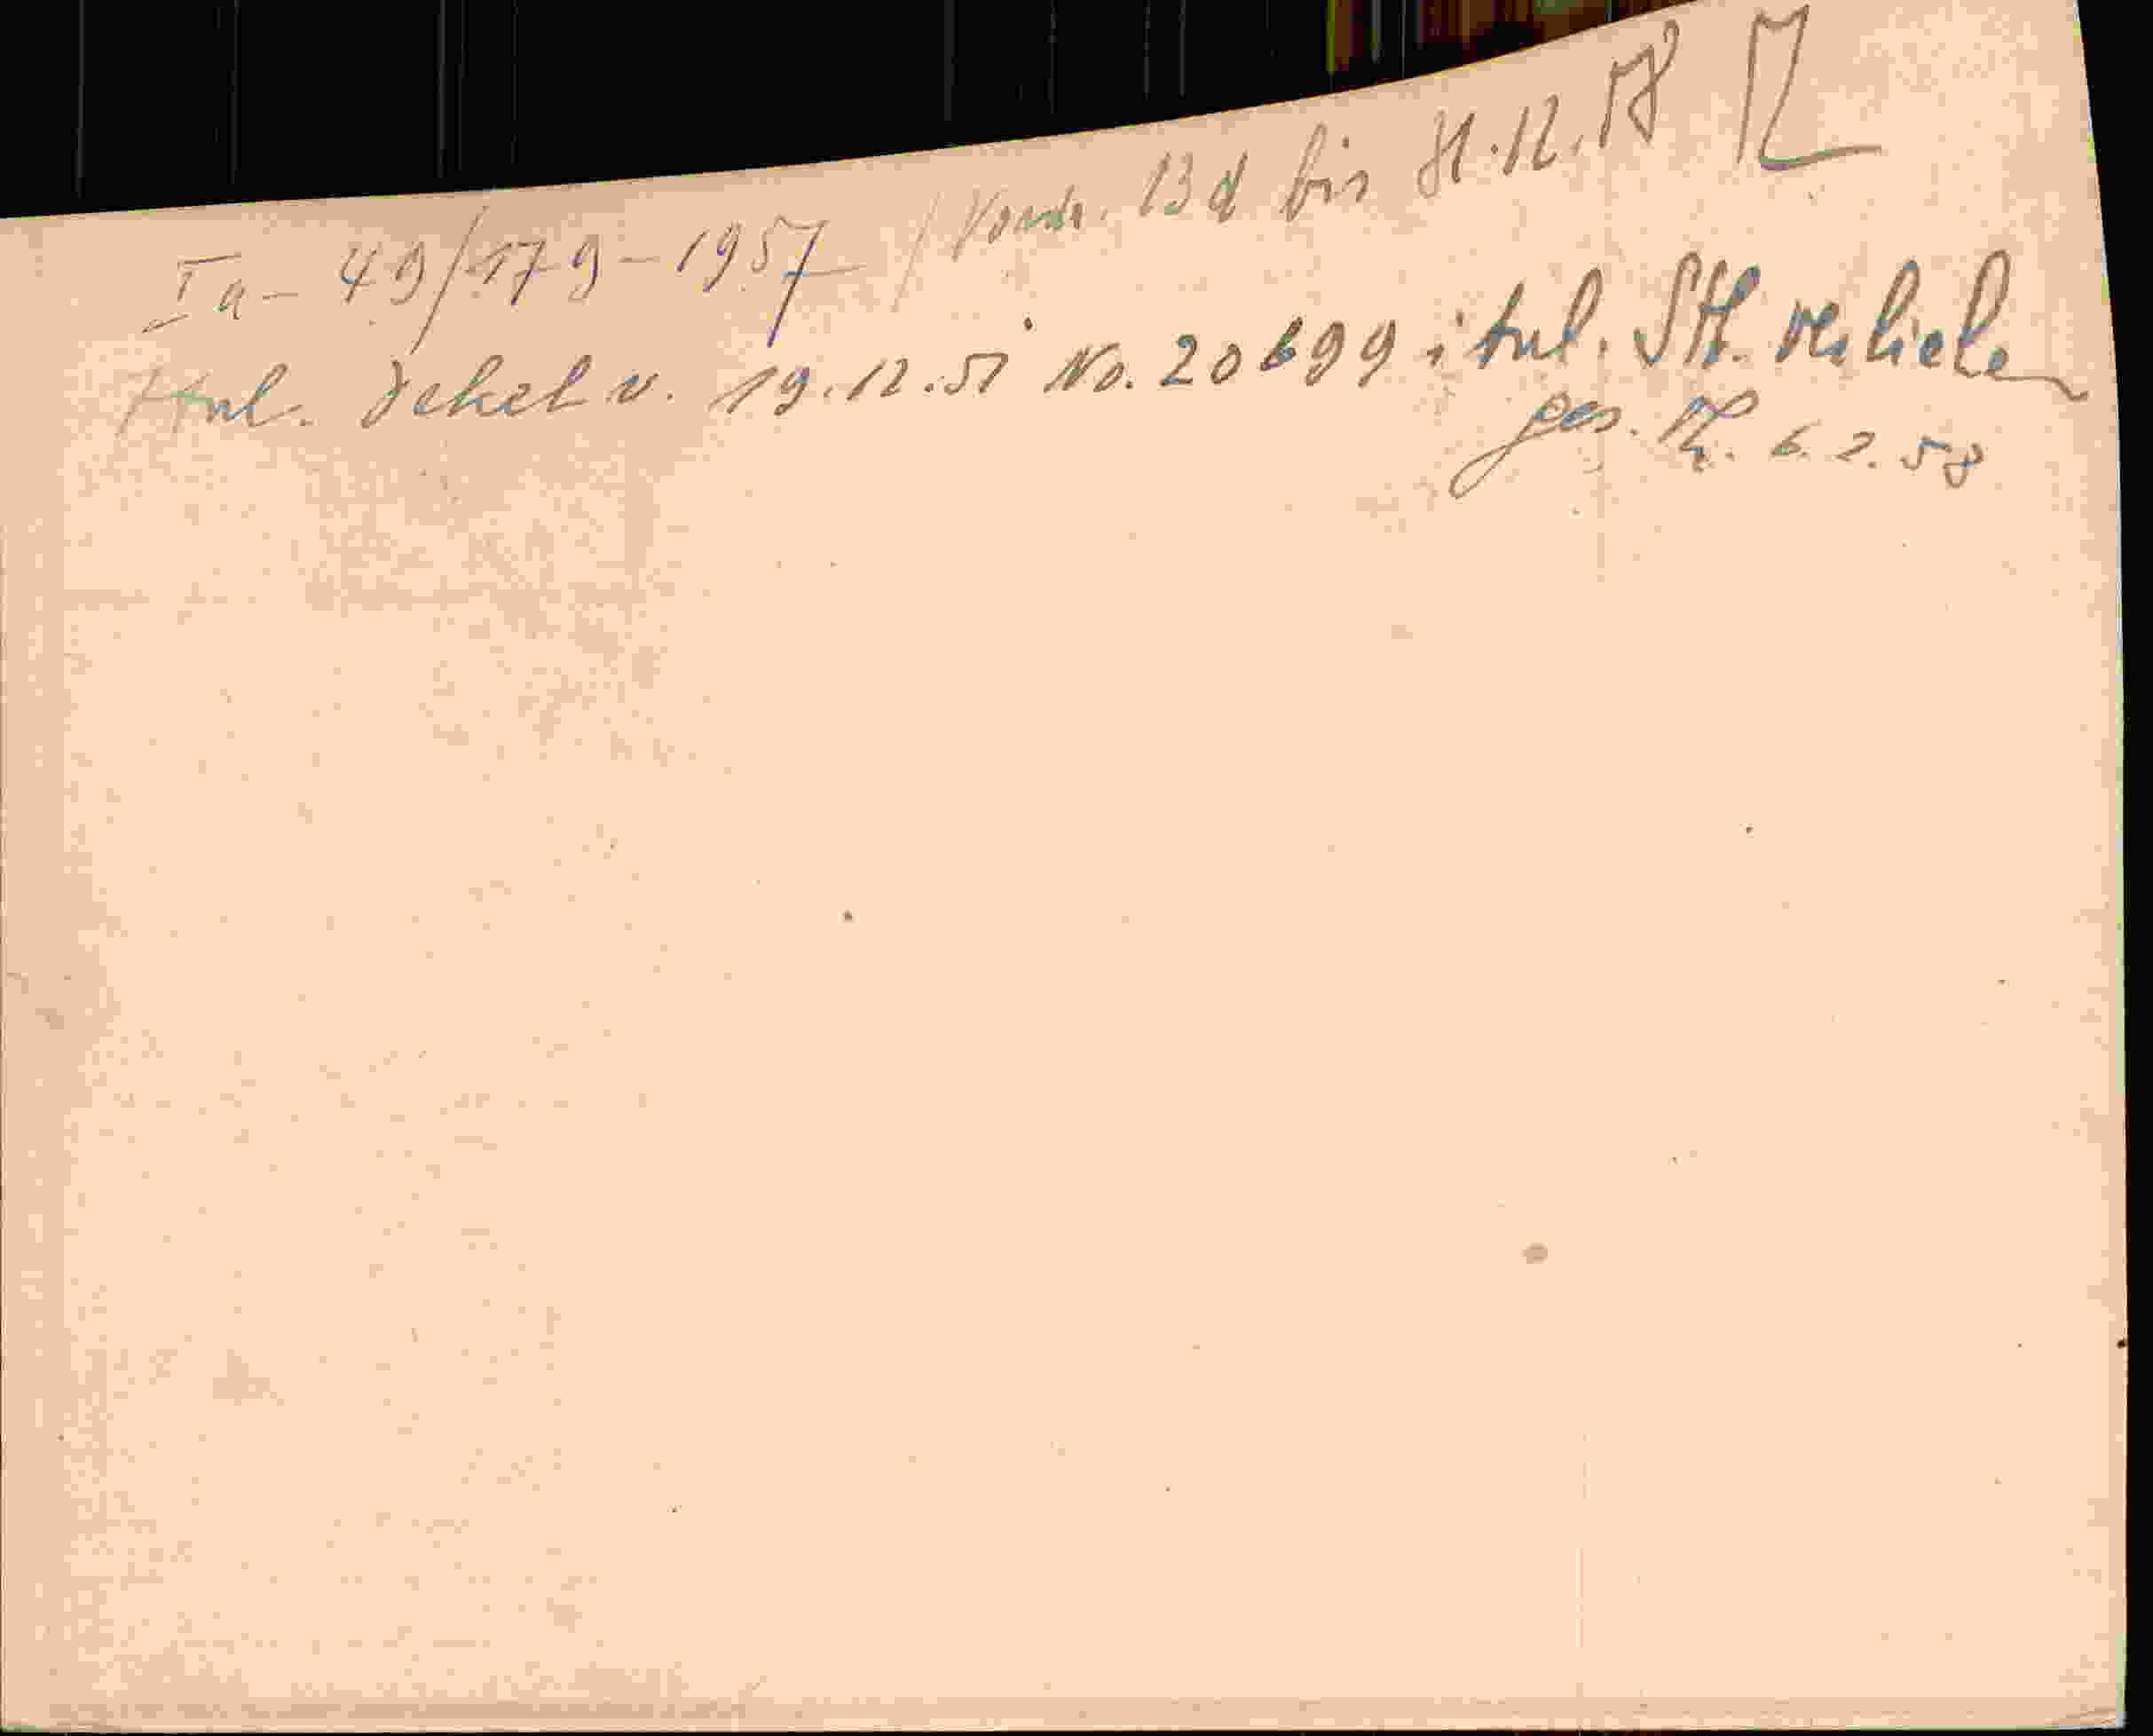 Ia - 49/179-1957 / Vordr. 13d bis 31.12.58
Ital. Dekret v. 19.12.57 No. 20699, ital. StA. verliehen
ges. 6.2.58